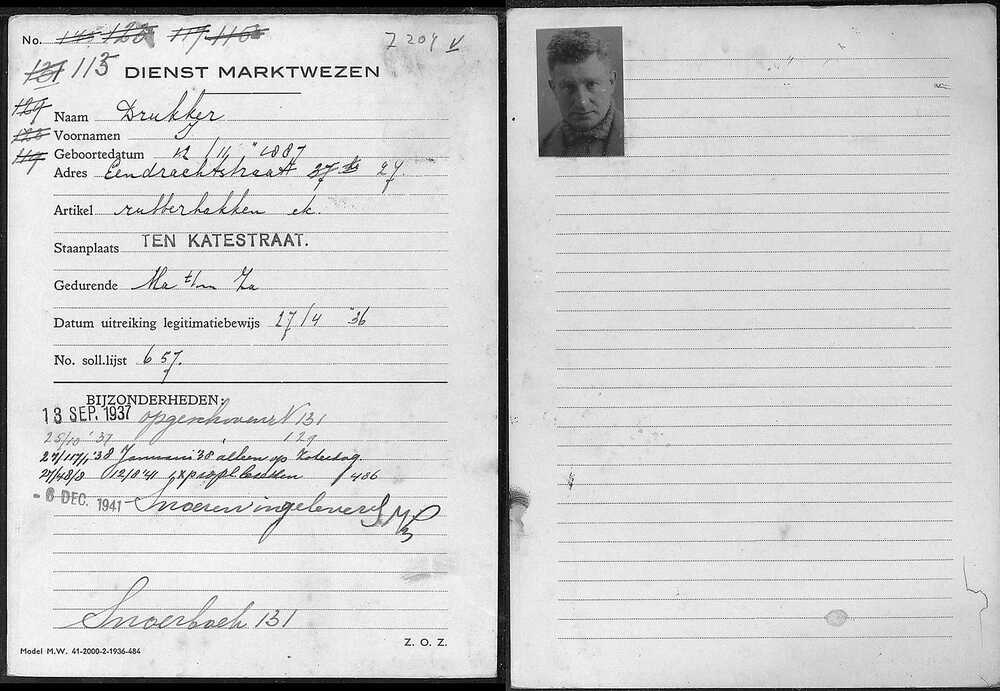 No. 145 123 117 116 Z 204 V
121 113 DIENST MARKTWEZEN
129 Naam Drukker
123 Voornamen J
119 Geboortedatum 12/11 1887
Adres Eendrachtstraat 37 27
Artikel rubberhakken
Staanplaats TEN KATESTRAAT.
Gedurende Ma t/m Za
Datum uitreiking legitimatiebewijs 27/4 '36
No. soll.lijst 657.
BIJZONDERHEDEN:
13 SEP. 1937 opgeschoven N 131
25/10 '37 129
Januari '38 alleen op Zaterdag.
12/8 '41
- 6 DEC. 1941 Snoeren ingeleverd
Snoerboek 131
Z. O. Z.
Model M.W. 41-2000-2-1936-484